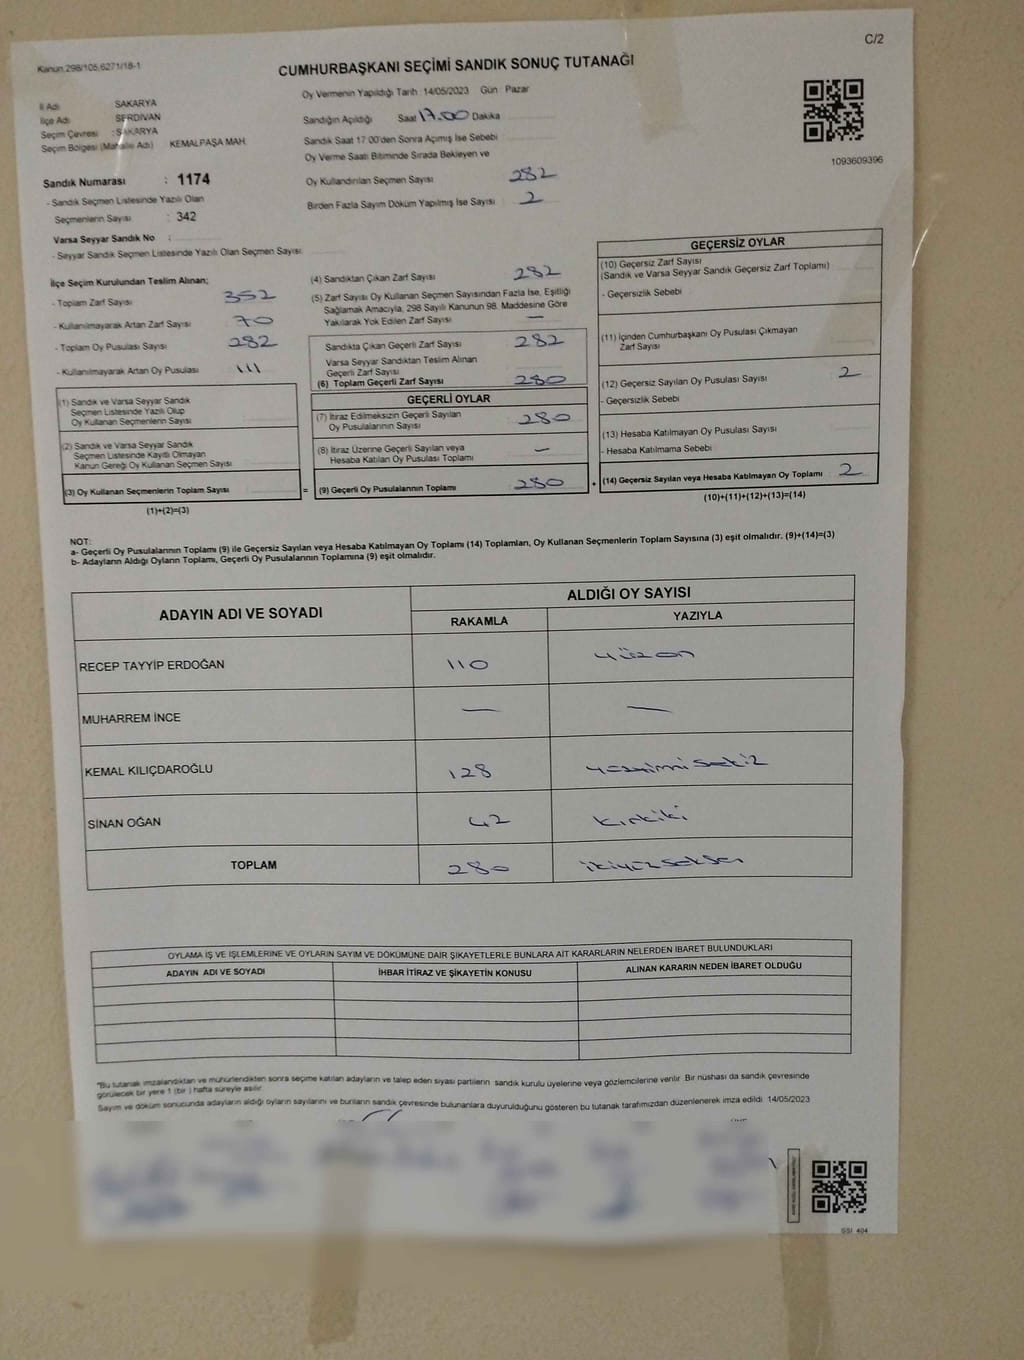 C/2
Kanun 298/105,6271/18-1
CUMHURBAŞKANI SEÇİMİ SANDIK SONUÇ TUTANAĞI
Oy Vermenin Yapıldığı Tarih : 14/05/2023 Gün : Pazar
İl Adı SAKARYA
İlçe Adı SERDİVAN
Seçim Çevresi : SAKARYA
Seçim Bölgesi (Mahalle Adı) KEMALPAŞA MAH.
Sandığın Açıldığı Saat 17.00 Dakika
Sandık Saat 17.00'den Sonra Açılmış İse Sebebi
Oy Verme Saati Bitiminde Sırada Bekleyen ve
Oy Kullandırılan Seçmen Sayısı 282
Birden Fazla Sayım Döküm Yapılmış İse Sayısı 2
1093609396
Sandık Numarası : 1174
- Sandık Seçmen Listesinde Yazılı Olan
Seçmenlerin Sayısı : 342
Varsa Seyyar Sandık No :
- Seyyar Sandık Seçmen Listesinde Yazılı Olan Seçmen Sayısı:
İlçe Seçim Kurulundan Teslim Alınan;
- Toplam Zarf Sayısı 352
- Kullanılmayarak Artan Zarf Sayısı 70
- Toplam Oy Pusulası Sayısı 282
- Kullanılmayarak Artan Oy Pusulası
(1) Sandık ve Varsa Seyyar Sandık
Seçmen Listesinde Yazılı Olup
Oy Kullanan Seçmenlerin Sayısı
(2) Sandık ve Varsa Seyyar Sandık
Seçmen Listesinde Kayıtlı Olmayan
Kanun Gereği Oy Kullanan Seçmen Sayısı
(3) Oy Kullanan Seçmenlerin Toplam Sayısı =
(1)+(2)=(3)
(4) Sandıktan Çıkan Zarf Sayısı 282
(5) Zarf Sayısı Oy Kullanan Seçmen Sayısından Fazla İse, Eşitliği
Sağlamak Amacıyla, 298 Sayılı Kanunun 98. Maddesine Göre
Yakılarak Yok Edilen Zarf Sayısı —
Sandıkta Çıkan Geçerli Zarf Sayısı 282
Varsa Seyyar Sandıktan Teslim Alınan
Geçerli Zarf Sayısı
(6) Toplam Geçerli Zarf Sayısı 280
GEÇERLİ OYLAR
(7) İtiraz Edilmeksizin Geçerli Sayılan
Oy Pusulalarının Sayısı 280
(8) İtiraz Üzerine Geçerli Sayılan veya
Hesaba Katılan Oy Pusulası Toplamı —
(9) Geçerli Oy Pusulalarının Toplamı 280 +
GEÇERSİZ OYLAR
(10) Geçersiz Zarf Sayısı
(Sandık ve Varsa Seyyar Sandık Geçersiz Zarf Toplamı)
- Geçersizlik Sebebi
(11) İçinden Cumhurbaşkanı Oy Pusulası Çıkmayan
Zarf Sayısı
(12) Geçersiz Sayılan Oy Pusulası Sayısı 2
- Geçersizlik Sebebi
(13) Hesaba Katılmayan Oy Pusulası Sayısı
- Hesaba Katılmama Sebebi
(14) Geçersiz Sayılan veya Hesaba Katılmayan Oy Toplamı 2
(10)+(11)+(12)+(13)=(14)
NOT:
a- Geçerli Oy Pusulalarının Toplamı (9) ile Geçersiz Sayılan veya Hesaba Katılmayan Oy Toplamı (14) Toplamları, Oy Kullanan Seçmenlerin Toplam Sayısına (3) eşit olmalıdır. (9)+(14)=(3)
b- Adayların Aldığı Oyların Toplamı, Geçerli Oy Pusulalarının Toplamına (9) eşit olmalıdır.
ADAYIN ADI VE SOYADI ALDIĞI OY SAYISI
RAKAMLA YAZIYLA
RECEP TAYYİP ERDOĞAN 110 yüzon
MUHARREM İNCE — —
KEMAL KILIÇDAROĞLU 128 yüzyirmisekiz
SİNAN OĞAN 42 kırkiki
TOPLAM 280 ikiyüzseksen
OYLAMA İŞ VE İŞLEMLERİNE VE OYLARIN SAYIM VE DÖKÜMÜNE DAİR ŞİKAYETLERLE BUNLARA AİT KARARLARIN NELERDEN İBARET BULUNDUKLARI
ADAYIN ADI VE SOYADI İHBAR İTİRAZ VE ŞİKAYETİN KONUSU ALINAN KARARIN NEDEN İBARET OLDUĞU
"Bu tutanak imzalandıktan ve mühürlendikten sonra seçime katılan adayların ve talep eden siyasi partilerin sandık kurulu üyelerine veya gözlemcilerine verilir. Bir nüshası da sandık çevresinde
görülecek bir yere 1 (bir) hafta süreyle asılır.
Sayım ve döküm sonucunda adayların aldığı oyların sayılarını ve bunların sandık çevresinde bulunanlara duyurulduğunu gösteren bu tutanak tarafımızdan düzenlenerek imza edildi. 14/05/2023
GSI 404